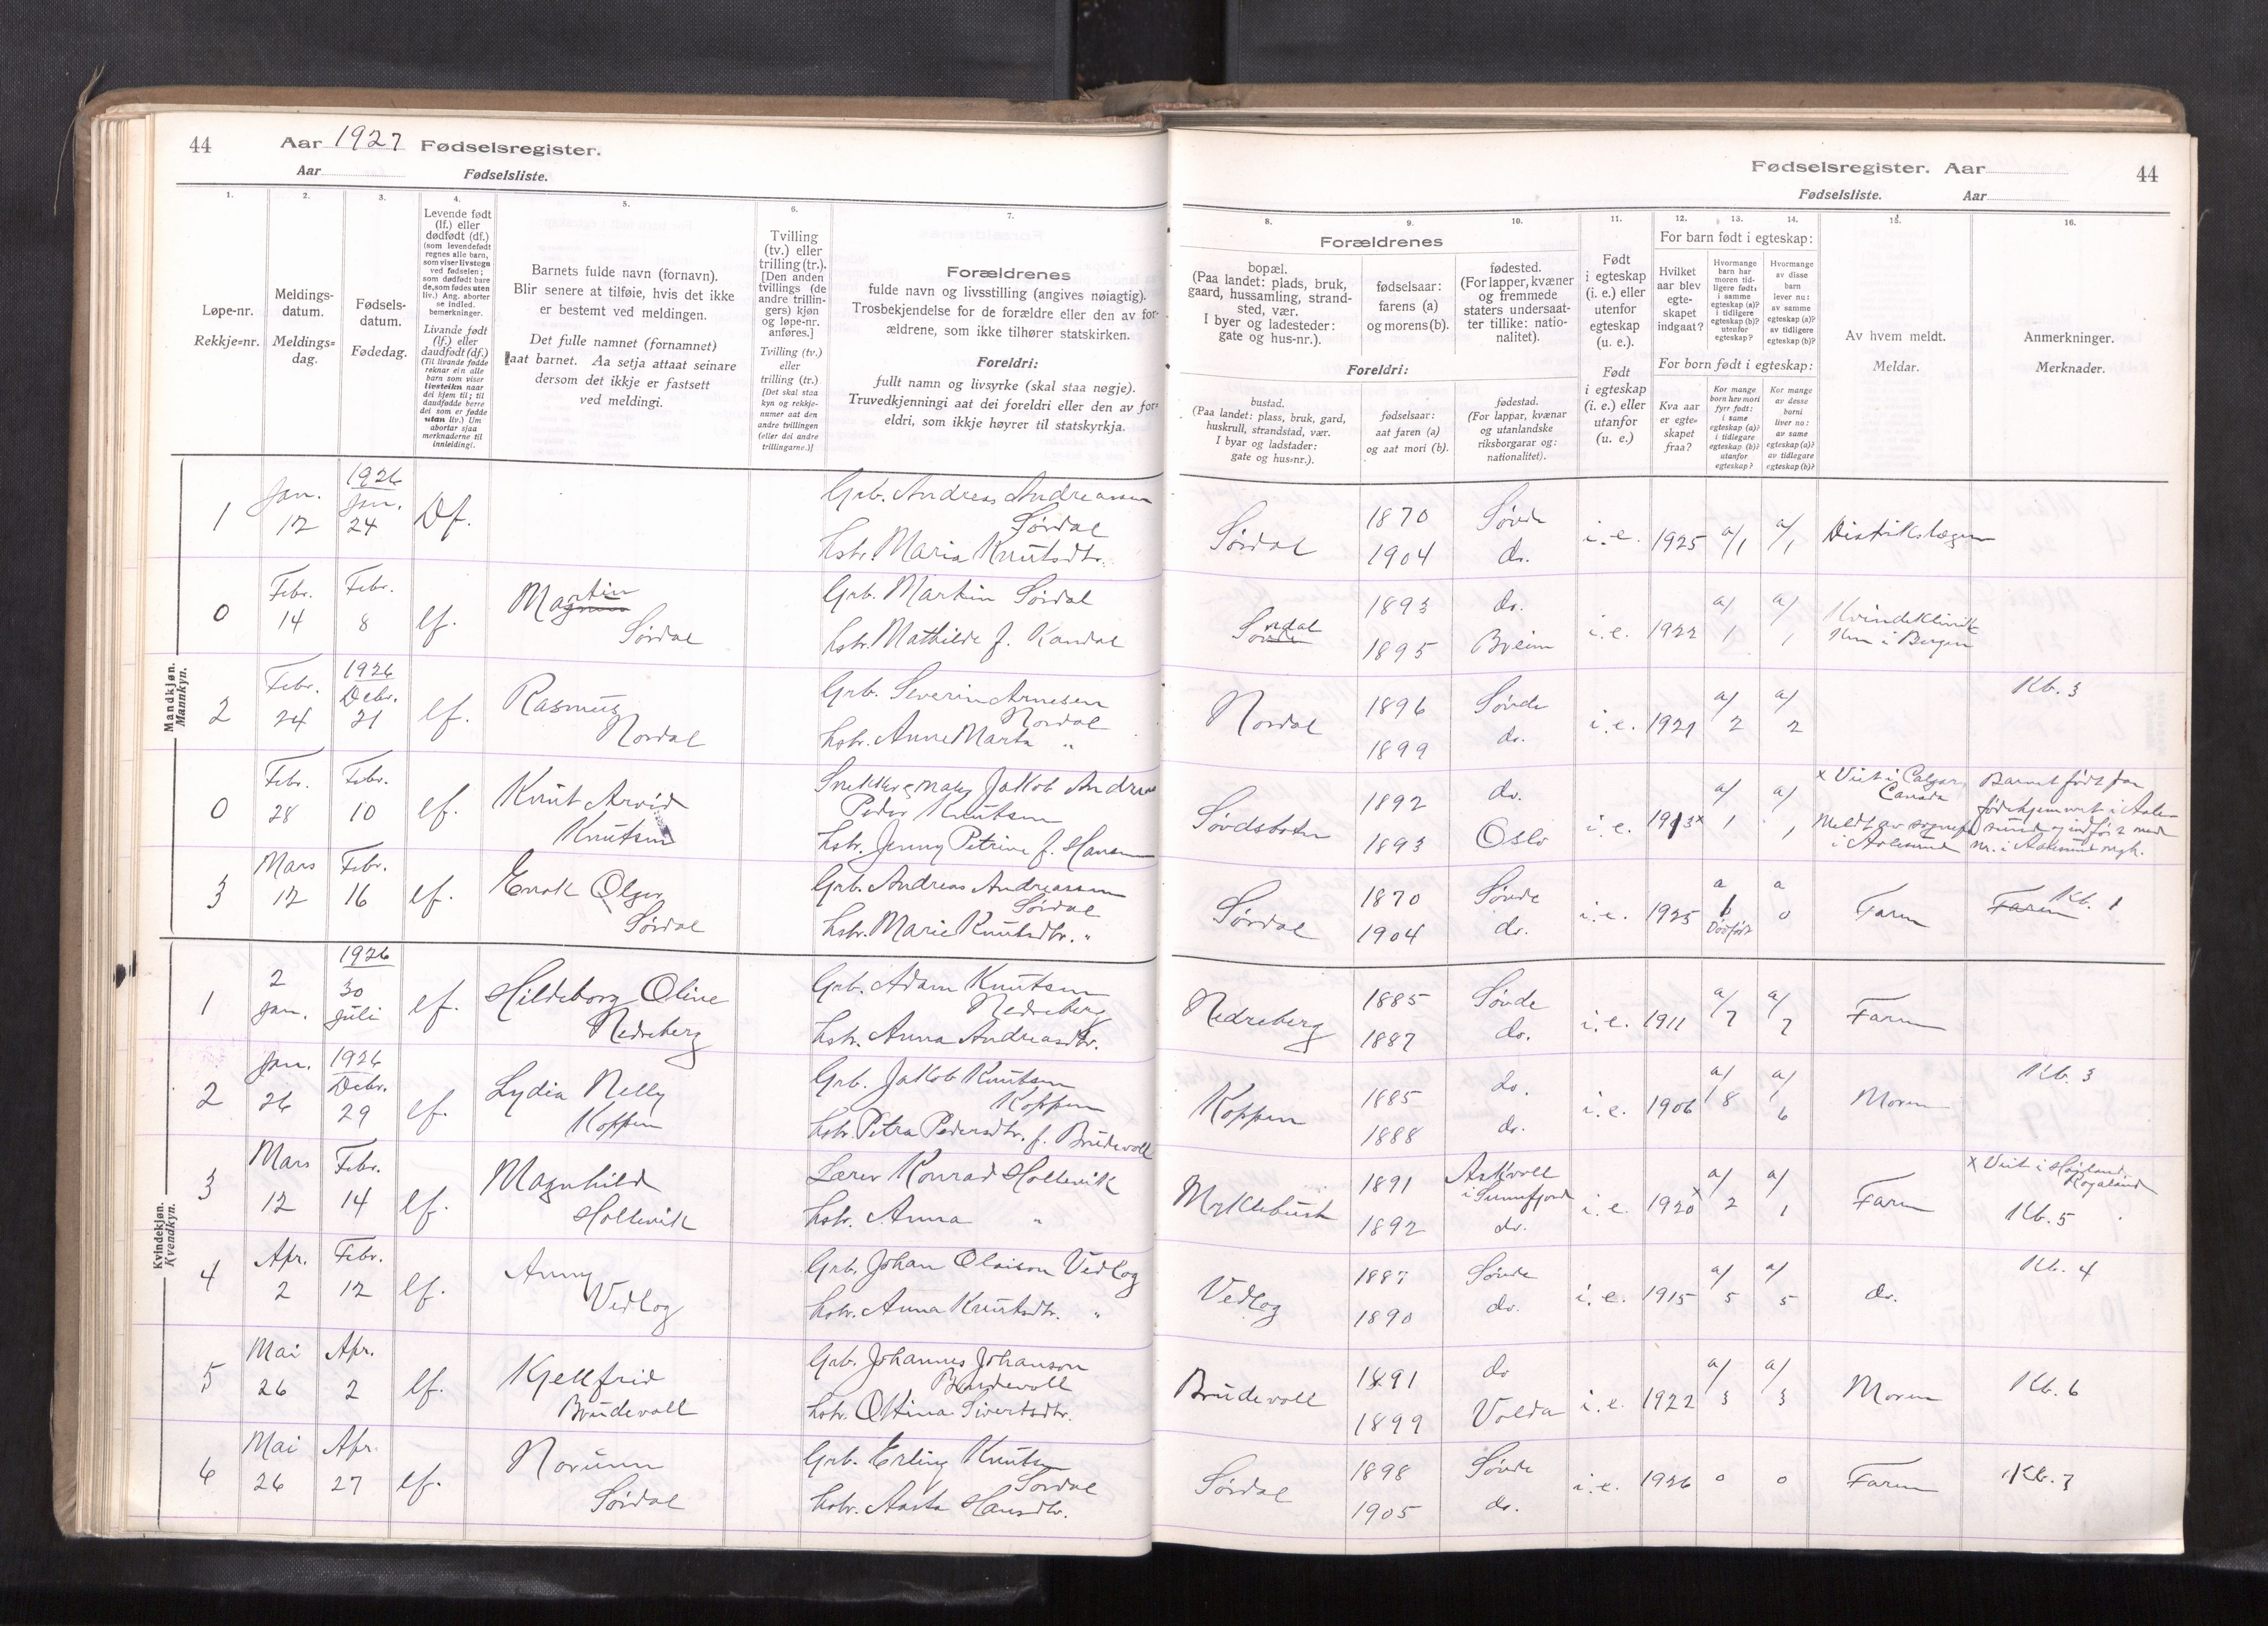 44 Aar 1927 Fødselsregister.
Aar Fødselsliste.
1. 2. 3. 4. 5. 6. 7.
Løpe-nr.
Rekkje=nr.
Meldings-
datum.
Meldings=
dag.
Fødsels-
datum.
Fødedag.
Levende født
(lf.) eller
dødfødt (df.)
(som levendefødt
regnes alle barn,
som viser livstegn
ved fødselen;
som dødfødt bare
de, som fødes uten
liv.) Ang. aborter
se indled.
bemerkninger.
Livande født
(lf.) eller
daudfødt (df.)
(Til livande fødde
reknar ein alle
barn som viser
livsteikn naar
dei kjem til; til
daudfødde berre
dei som er fødde
utan liv.) Um
abortar sjaa
merknaderne til
innleidingi.
Barnets fulde navn (fornavn).
Blir senere at tilføie, hvis det ikke
er bestemt ved meldingen.
Det fulle namnet (fornamnet)
aat barnet. Aa setja attaat seinare
dersom det ikkje er fastsett
ved meldingi.
Tvilling
(tv.) eller
trilling (tr.).
[Den anden
tvillings (de
andre trillin-
gers) kjøn
og løpe-nr.
anføres.]
Tvilling (tv.)
eller
trilling (tr.)
[Det skal staa
kyn og rekkje-
numer aat den
andre tvillingen
(eller dei andre
trillingarne.)]
Forældrenes
fulde navn og livsstilling (angives nøiagtig).
Trosbekjendelse for de forældre eller den av for-
ældrene, som ikke tilhører statskirken.
Foreldri:
fullt namn og livsyrke (skal staa nøgje).
Truvedkjenningi aat dei foreldri eller den av for=
eldri, som ikkje høyrer til statskyrkja.
Mandkjøn.
Mannkyn.
1 Jan. 12 1926 Jan. 24 Df.
Grb. Andreas Andreassen
Sørdal
hstr. Maria Knutsdtr.
0 Febr. 14 Febr. 8 lf.
Martin
Sørdal
Grb. Martin Sørdal
hstr. Mathilde f. Kandal
2 Febr. 24 1926 Debr. 21 lf.
Rasmus
Nordal
Grb. Severin Arnesen
Nordal
hstr. Anne Marta "
0 Febr. 28 Febr. 10 lf.
Knut Arvid
Knutsen
Jakob Andreas
Peder Knutsen
hstr. Jenny Petrine f. Hansen
3 Mars 12 Febr. 16 lf.
Sørdal
Grb. Andreas Andreassen
Sørdal
hstr. Marie Knutsdtr. "
Kvindekjøn.
Kvendkyn.
1 2 Jan. 1926 30 Juli lf.
Hildeborg Oline
Nedreberg
Grb. Adam Knutsen
Nedreberg
hstr. Anna Andreasdtr.
2 Jan. 26 1926 Debr. 29 lf.
Lydia Nelly
Koppen
Grb. Jakob Knutsen
Koppen
hstr. Petra Pedersdtr. f. Brudevoll
3 Mars 12 Febr. 14 lf.
Magnhild
Hollevik
Lærer Konrad Hollevik
hstr. Anna "
4 Apr. 2 Febr. 12 lf.
Anny
Vedlog
Grb. Johan Olaison Vedlog
hstr. Anna Knutsdtr. "
5 Mai 26 Apr. 2 lf.
Kjellfrid
Brudevoll
Grb. Johannes Johanson
Brudevoll
hstr. Ottina Sivertsdtr.
6 Mai 26 Apr. 27 lf.
Norunn
Sørdal
Grb. Erling Knutsen
Sørdal
hstr. Aasta Hansdtr.
Fødselsregister. Aar 44
Fødselsliste. Aar
8. 9. 10. 11. 12. 13. 14. 15. 16.
Forældrenes
bopæl.
(Paa landet: plads, bruk,
gaard, hussamling, strand-
sted, vær.
I byer og ladesteder:
gate og hus-nr.).
fødselsaar:
farens (a)
og morens (b).
fødested.
(For lapper, kvæner
og fremmede
staters undersaat-
ter tillike: natio-
nalitet).
Foreldri:
bustad.
(Paa landet: plass, bruk, gard,
huskrull, strandstad, vær.
I byar og ladstader:
gate og hus=nr.).
fødselsaar:
aat faren (a)
og aat mori (b).
fødestad.
(For lappar, kvænar
og utanlandske
riksborgarar og:
nationalitet).
Født
i egteskap
(i. e.) eller
utenfor
egteskap
(u. e.).
Født
i egteskap
(i. e.) eller
utanfor
(u. e.)
For barn født i egteskap:
Hvilket
aar blev
egte-
skapet
indgaat?
Hvormange
barn har
moren tid-
ligere født:
i samme
egteskap (a)?
i tidligere
egteskap (b)?
utenfor
egteskap?
Hvormange
av disse
barn
lever nu:
av samme
egteskap (a)?
av tidligere
egteskap (b)?
For born født i egteskap:
Kva aar
er egte=
skapet
fraa?
Kor mange
born hev mori
fyrr født:
i same
egteskap (a)?
i tidlegare
egteskap (b)?
utanfor
egteskap?
Kor mange
av desse
borni
liver no:
av same
egteskap (a)?
av tidlegare
egteskap (b)?
Av hvem meldt.
Meldar.
Anmerkninger.
Merknader.
Sørdal 1870 1904 Søvde do. i.e. 1925 a/1 a/1 Distrikslægen
Sørdal 1893 1895 do. Breim i.e. 1922 a/1 a/1 i Bergen
Nordal 1896 1899 Søvde do. i.e. 1921 a/2 a/2 Kb. 3
Søvdsbotn 1892 1893 do. Oslo i.e. 1913x a/1 a/1
x Viet i Calgary
Canada
i Aalesund
Sørdal 1870 1904 Søvde do. i.e. 1925 a Dødfødt a 0 Faren Kb. 1
Nedreberg 1885 1887 Søvde do. i.e. 1911 a/7 a/7 Faren
Koppen 1885 1888 do. do. i.e. 1906 a/8 a/6 Moren Kb. 3
Myklebust 1891 1892 Askvoll i Sunnfjord do. i.e. 1920x a/2 a/1 Faren
x Viet i
Rogaland
Kb. 5
Vedlog 1887 1890 Søvde do. i.e. 1915 a/5 a/5 do. Kb. 4
Brudevoll 1891 1899 do Volda i.e. 1922 a/3 a/3 Moren Kb. 6
Sørdal 1898 1905 Søvde do. i.e. 1926 0 0 Faren Kb. 7